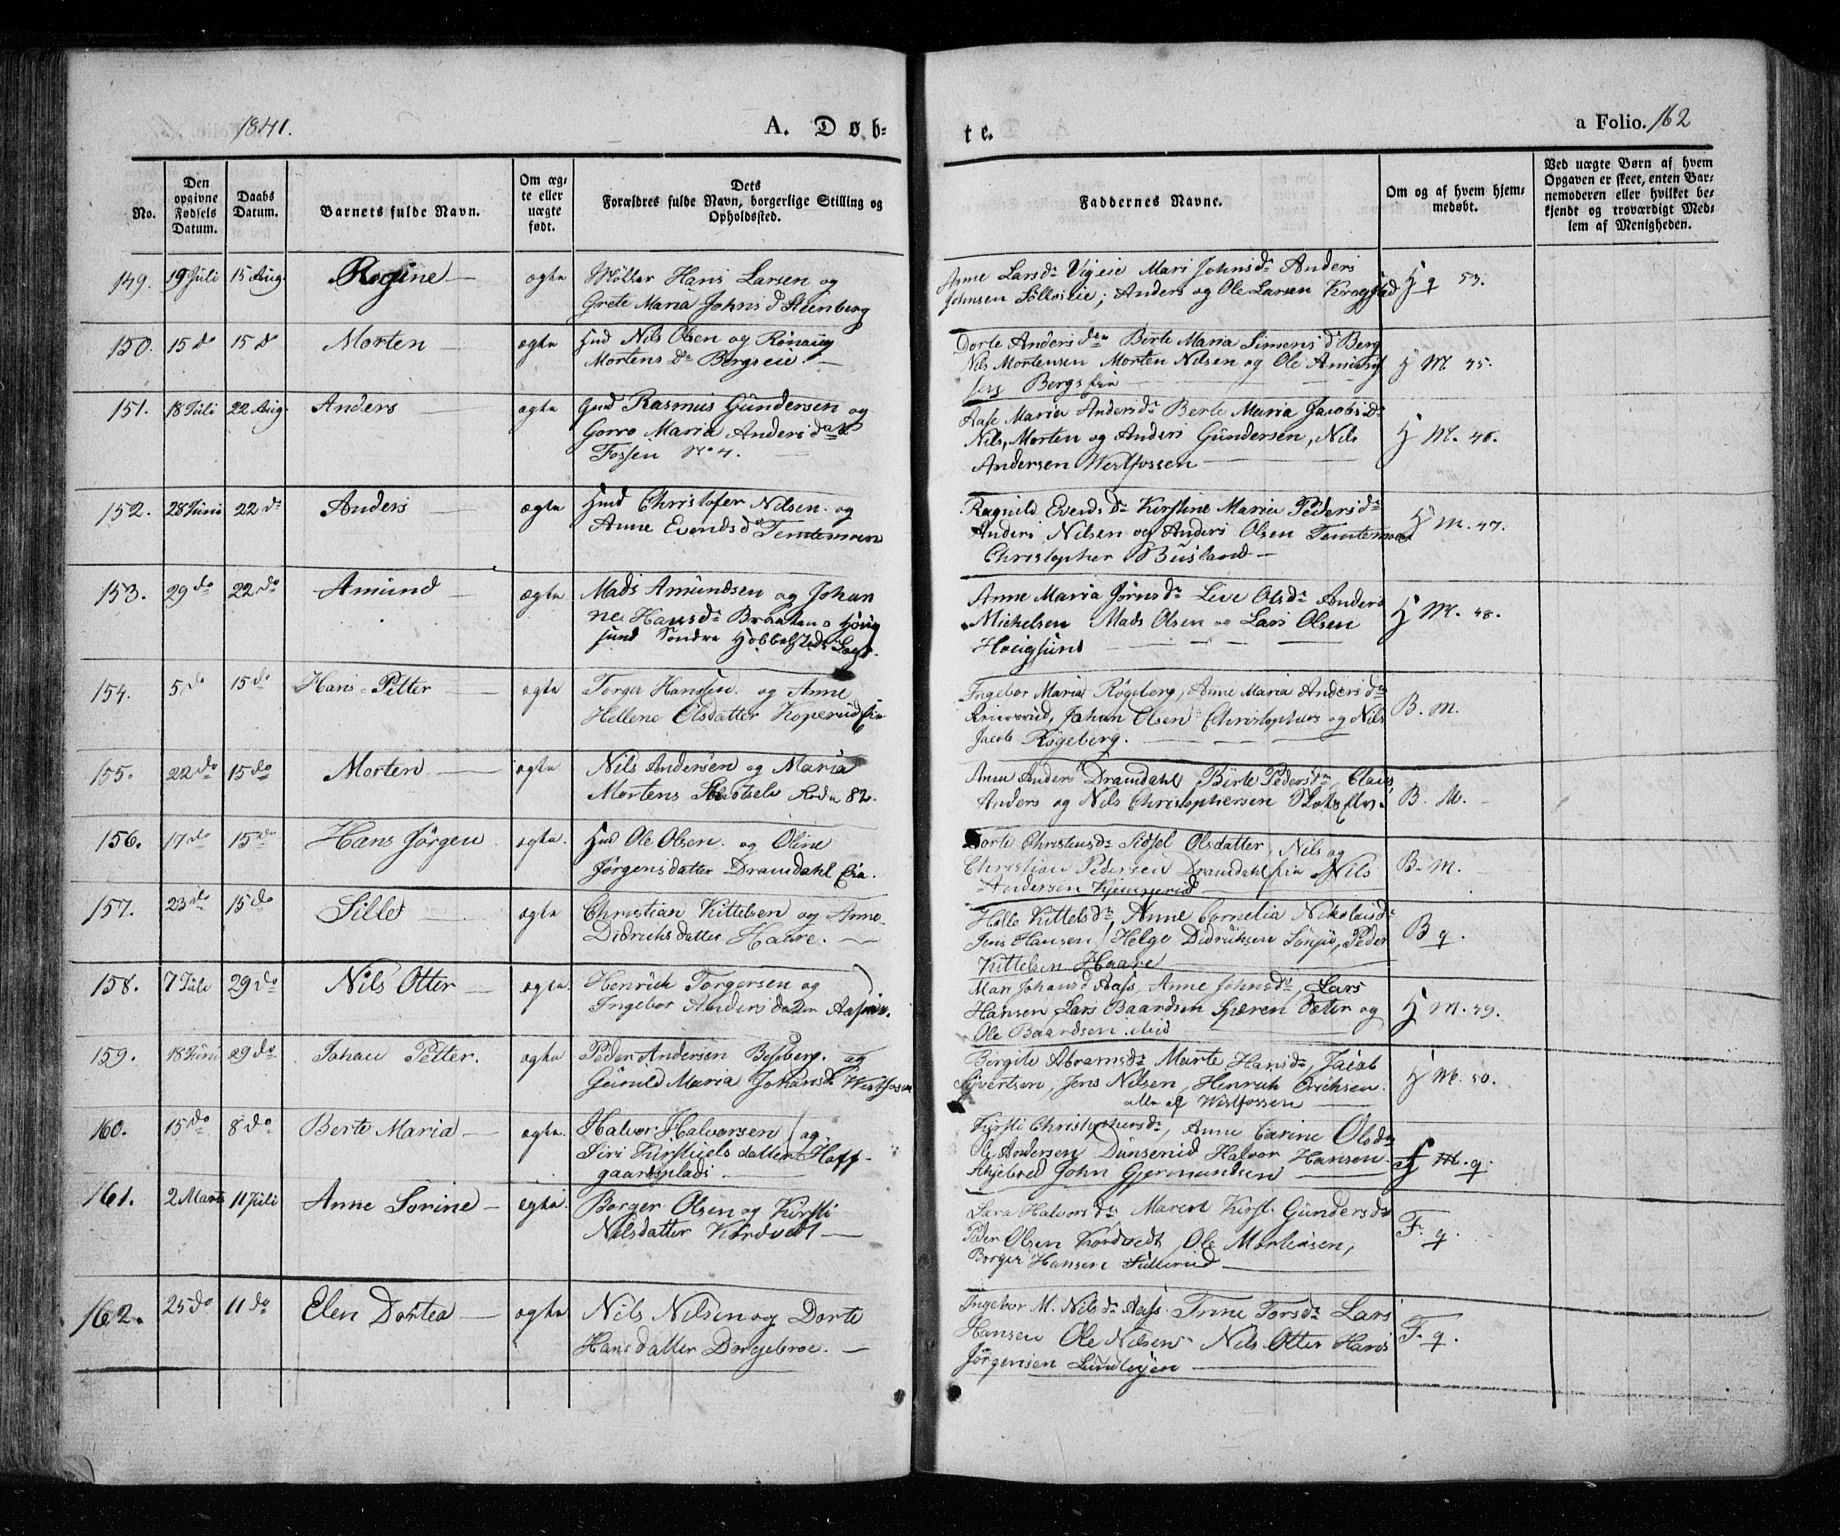 1841.
A. Døb-
te.
a Folio. 162
No.
Den opgivne Fødsels Datum.
Daabs Datum.
Barnets fulde Navn.
Om ægte eller uægte født.
Dets Forældres fulde Navn, borgerlige Stilling og Opholdssted.
Faddernes Navne.
Om og af hvem hjemmedøbt.
Ved uægte Børn af hvem Opgaven er skeet, enten Barnemoderen eller hvilket bekjendt og troværdigt Medlem af Menigheden.
149. 19 Juli 15 Aug. Regine — ægte
Hans Larsen og
Grete Maria Johns d. Steenberg
Anne Larsdr. Mari Johnsdr. Anders
Johnsen og Ole Larsen
53.
150. 15 do 15 do Morten — ægte
Hmd Nils Olsen og Rönaug
Mortens dr. Bergseie —
Dorte Anders Berte Maria Simens d. Berg
Nils Mortensen Morten Nilsen og Ole
H M 45.
151. 18 Juli 22 Aug. Anders — ægte
Rasmus Gundersen og
Maria Anders
Fossen No 4.
Aase Maria Andersdr. Berte Maria Jacobsdr.
Nils, Morten og Anders Gundersen, Nils
Andersen Westfossen —
H M. 46.
152. 28 Juni 22 do Anders — ægte
Hmd Christofer Nilsen og
Anne Evends d. Temtemoen
Ragnild Evends dr. Kirstine Maria Peders dr.
Anders Nilsen og Anders Olsen Temtemoen
Christopher Busland —
H M. 47.
153. 29 do 22 do Amund — ægte
Mads Amundsen og Johan
ne Hansdr. Braaten
sund Søndre
Anne Maria Jörnsdr. Live Olsdr. Anders
Michelsen Mads Olsen og Lars Olsen
Hougsund —
H M. 48.
154. 5 do 15 do Hans Petter — ægte
Torger Hanssen og Anne
Hellene Olsdatter Koperudeie
Ingebor Maria Røgeberg, Anne Maria Anders dr.
Johan Olsen Christophers og Nils
Jacob Røgeberg. —
B. M.
155. 22 do 15 do Morten — ægte
Nils Andersen og Maria
Mortens 82.
Anne Anders Dramdahl, Birte Pedersdr., Claus,
Anders og Nils Christophersen
B. M. —
156. 17 do 15 do Hans Jørgen ægte.
Hmd Ole Olsen og Oline
Jørgensdatter Dramdahl Eie.
Dorte Christensdr. Sidsel Olsdatter, Nils og
Christian Pedersen Dramdahl Nils
Andersen —
B. M.
157. 23 do 15 do Sille — ægte
Christian Kittelsen og Anne
Didrichsdatter Haare. —
Helle Kittelsdr. Anne Cornelia Nikolaisdr.
Jens Hansen / Helge Didrichsen Peder
Kittelsen Haare —
B q.
158. 7 Juli 29 do Nils Otter — ægte
Henrich Torgersen og
Ingebor Anders datter
Mari Johans d. Aass, Anne Johnsdr. Lars
Hansen Lars Baardsen Sæter og
Ole Baardsen ibid —
H M. 49.
159. 18 Juni 29 do Johan Petter. ægte
Peder Andersen og
Gunild Maria Johansdr. Westfossen
Birgite Abramsdr. Marte Hansdr. Jacob
Syvertsen, Jens Nilsen, Henrich Erichsen
alle af Westfossen —
H M. 50.
160. 15 do 8 do Berte Maria — ægte.
Halvor Halvorsen / og
Siri datter Hoff-
gaardsplads —
Kirsti Christophersdr. Anne Carine Olsdr.
Ole Andersen Halvor Hansen
John Gjermundsen —
F M. q.
161. 2 Marts 11 Juli Anne Sorine — ægte.
Borger Olsen og Kirsti
Nilsdatter Kordvedt —
Sara Halvors dr. Maren Kirst. Gundersdr.
Peder Olsen Kordvedt, Ole Mortensen,
Borger Hansen —
F. q.
162. 25 do 11 do Elen Dortea — ægte
Nils Nilsen og Dorte
Hansdatter Dorgebroe. —
Ingebor M. Nils dr. Aass. Trine Torsdr. Lars
Hansen Ole Nilsen Nils Otter Hans
Jørgensen —
F. q.